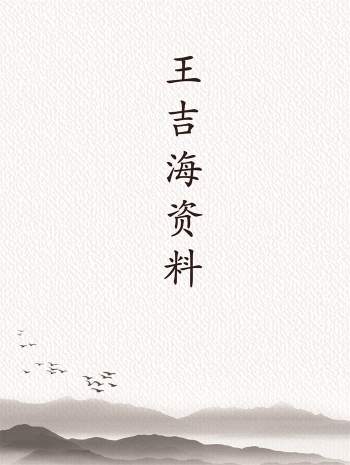 王吉海资料